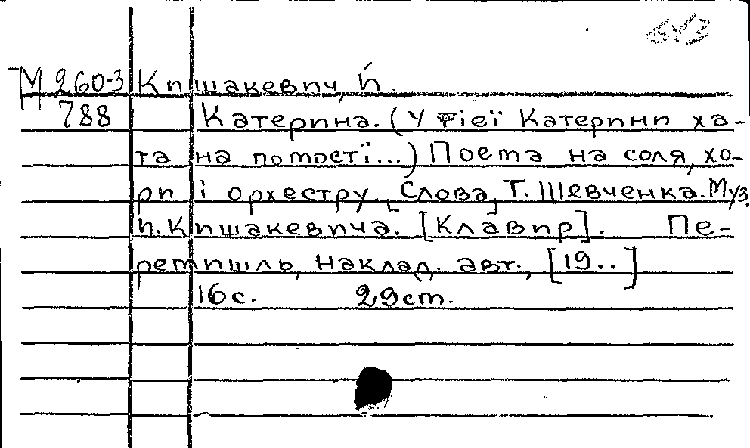 М 260-3 Кишакевич, Й.
788 Катерина. (У тієї Катерини ха-
та на помості...) Поема на соля, хо-
ри і оркестру, [Слова] Т. Шевченка. Муз.
Й. Кишакевича. [Клавир]. Пе-
ремишль, Наклад. авт., [19..]
16 с. 29 ст.